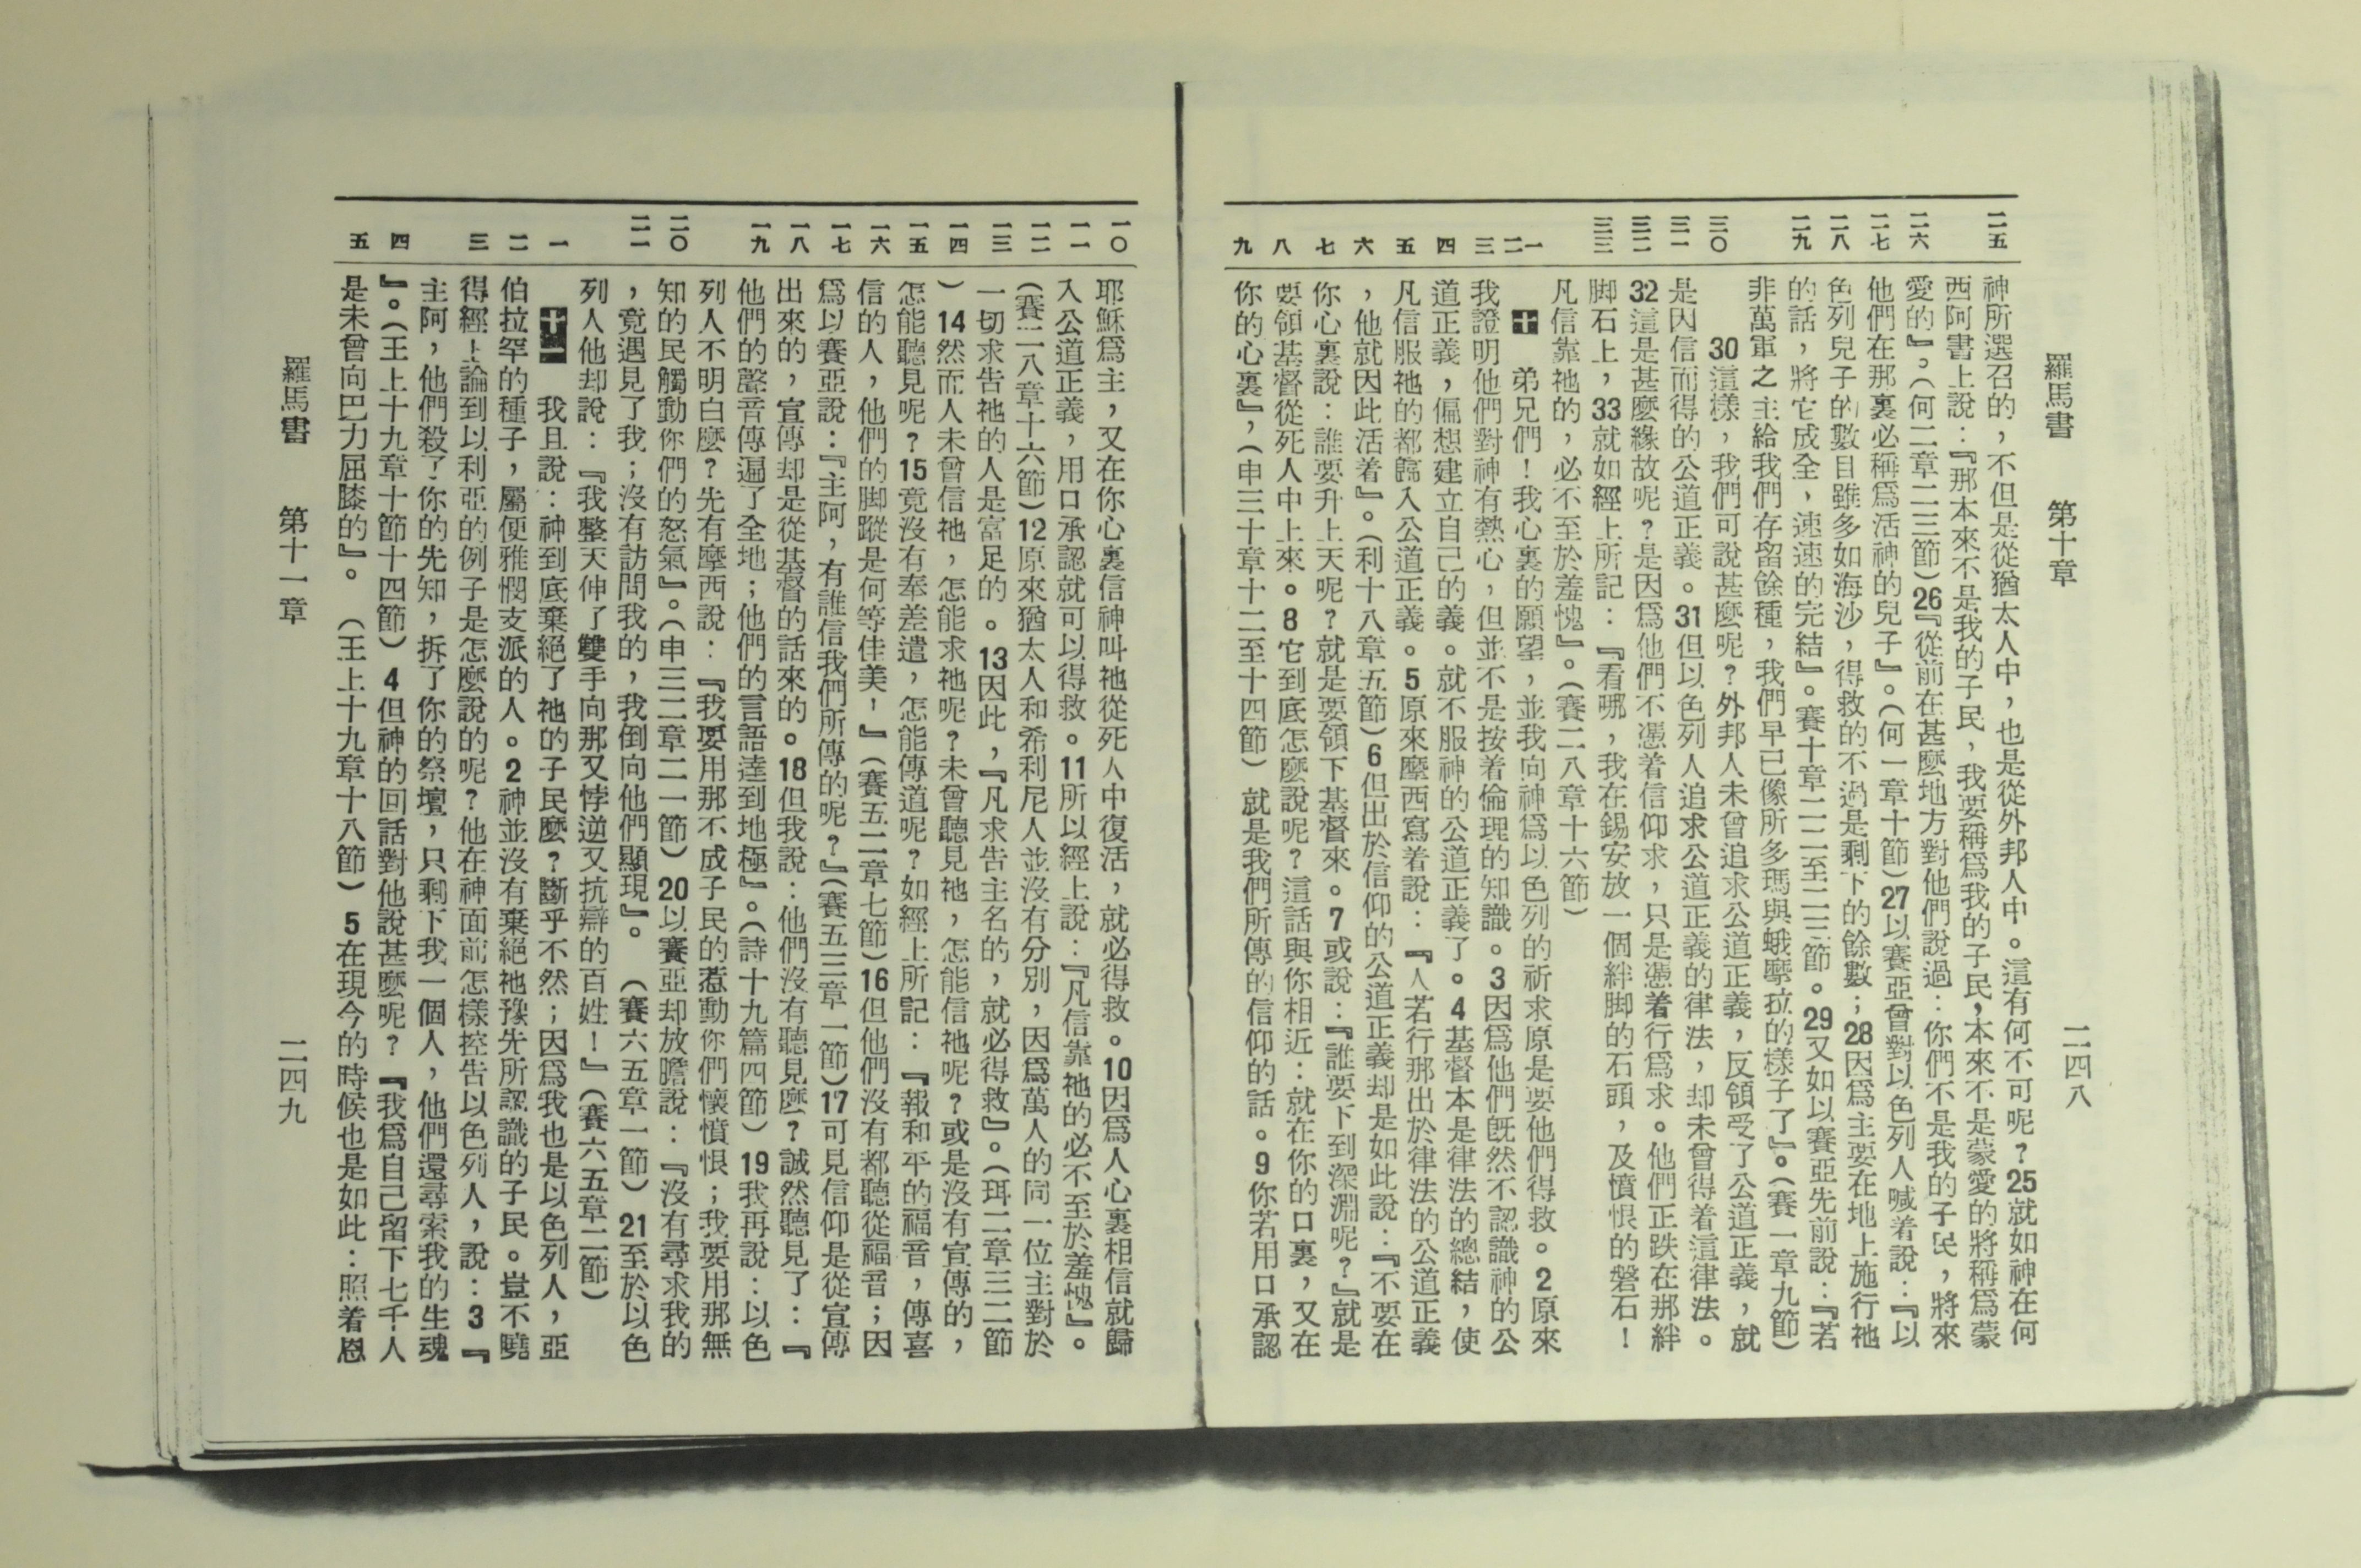 羅馬書 第十章 二四八
二五 二六 二七 二八 二九 三〇 三一 三二 三三 一 二 三 四 五 六 七 八 九
神所選召的，不但是從猶太人中，也是從外邦人中。這有何不可呢？25就如神在何
西阿書上說：『那本來不是我的子民，我要稱爲我的子民，本來不是蒙愛的將稱爲蒙
愛的』。（何二章二三節）26『從前在甚麼地方對他們說過：你們不是我的子民，將來
他們在那裏必稱爲活神的兒子』。（何一章十節）27以賽亞曾對以色列人喊着說：『以
色列兒子的數目雖多如海沙，得救的不過是剩下的餘數；28因爲主要在地上施行祂
的話，將它成全，速速的完結』。賽十章二二至二三節。29又如以賽亞先前說：『若
非萬軍之主給我們存留餘種，我們早已像所多瑪與蛾摩拉的樣子了』。（賽一章九節）
30這樣，我們可說甚麼呢？外邦人未曾追求公道正義，反領受了公道正義，就
是因信而得的公道正義。31但以色列人追求公道正義的律法，却未曾得着這律法。
32這是甚麼緣故呢？是因爲他們不憑着信仰求，只是憑着行爲求。他們正跌在那絆
脚石上，33就如經上所記：『看哪，我在錫安放一個絆脚的石頭，及憤恨的磐石！
凡信靠祂的，必不至於羞愧』。（賽二八章十六節）
十 弟兄們！我心裏的願望，並我向神爲以色列的祈求原是要他們得救。2原來
我證明他們對神有熱心，但並不是按着倫理的知識。3因爲他們旣然不認識神的公
道正義，偏想建立自己的義。就不服神的公道正義了。4基督本是律法的總結，使
凡信服祂的都歸入公道正義。5原來麼西寫着說：『人若行那出於律法的公道正義
，他就因此活着』。（利十八章五節）6但出於信仰的公道正義却是如此說：『不要在
你心裏說：誰要升上天呢？就是要領下基督來。7或說：『誰要下到深淵呢？』就是
要領基督從死人中上來。8它到底怎麼說呢？這話與你相近：就在你的口裏，又在
你的心裏』，（申三十章十二至十四節）就是我們所傳的信仰的話。9你若用口承認
一〇 一一 一二 一三 一四 一五 一六 一七 一八 一九 二〇 二一 一 二 三 四 五
耶穌爲主，又在你心裏信神叫祂從死人中復活，就必得救。10因爲人心裏相信就歸
入公道正義，用口承認就可以得救。11所以經上說：『凡信靠祂的必不至於羞愧』。
（賽二八章十六節）12原來猶太人和希利尼人並沒有分別，因爲萬人的同一位主對於
一切求告祂的人是富足的。13因此，『凡求告主名的，就必得救』。（珥二章三二節
）14然而人未曾信祂，怎能求祂呢？未曾聽見祂，怎能信祂呢？或是沒有宣傳的，
怎能聽見呢？15竟沒有奉差遣，怎能傳道呢？如經上所記：『報和平的福音，傳喜
信的人，他們的脚蹤是何等佳美！』（賽五二章七節）16但他們沒有都聽從福音；因
爲以賽亞說：『主阿，有誰信我們所傳的呢？』（賽五三章一節）17可見信仰是從宣傳
出來的，宣傳却是從基督的話來的。18但我說：他們沒有聽見麼？誠然聽見了：『
他們的聲音傳遍了全地；他們的言語達到地極』。（詩十九篇四節）19我再說：以色
列人不明白麼？先有摩西說：『我要用那不成子民的惹動你們懷憤恨；我要用那無
知的民觸動你們的怒氣』。（申三二章二一節）20以賽亞却放膽說：『沒有尋求我的
，竟遇見了我；沒有訪問我的，我倒向他們顯現』。（賽六五章一節）21至於以色
列人他却說：『我整天伸了雙手向那又悖逆又抗辯的百姓！』（賽六五章二節）
十一 我且說：神到底棄絕了祂的子民麼？斷乎不然；因爲我也是以色列人，亞
伯拉罕的種子，屬便雅憫支派的人。2神並沒有棄絕祂豫先所認識的子民。豈不曉
得經上論到以利亞的例子是怎麼說的呢？他在神面前怎樣控告以色列人，說：3『
主阿，他們殺了你的先知，拆了你的祭壇，只剩下我一個人，他們還尋索我的生魂
』。（王上十九章十節十四節）4但神的回話對他說甚麼呢？『我爲自己留下七千人
是未曾向巴力屈膝的』。（王上十九章十八節）5在現今的時候也是如此：照着恩
羅馬書 第十一章 二四九